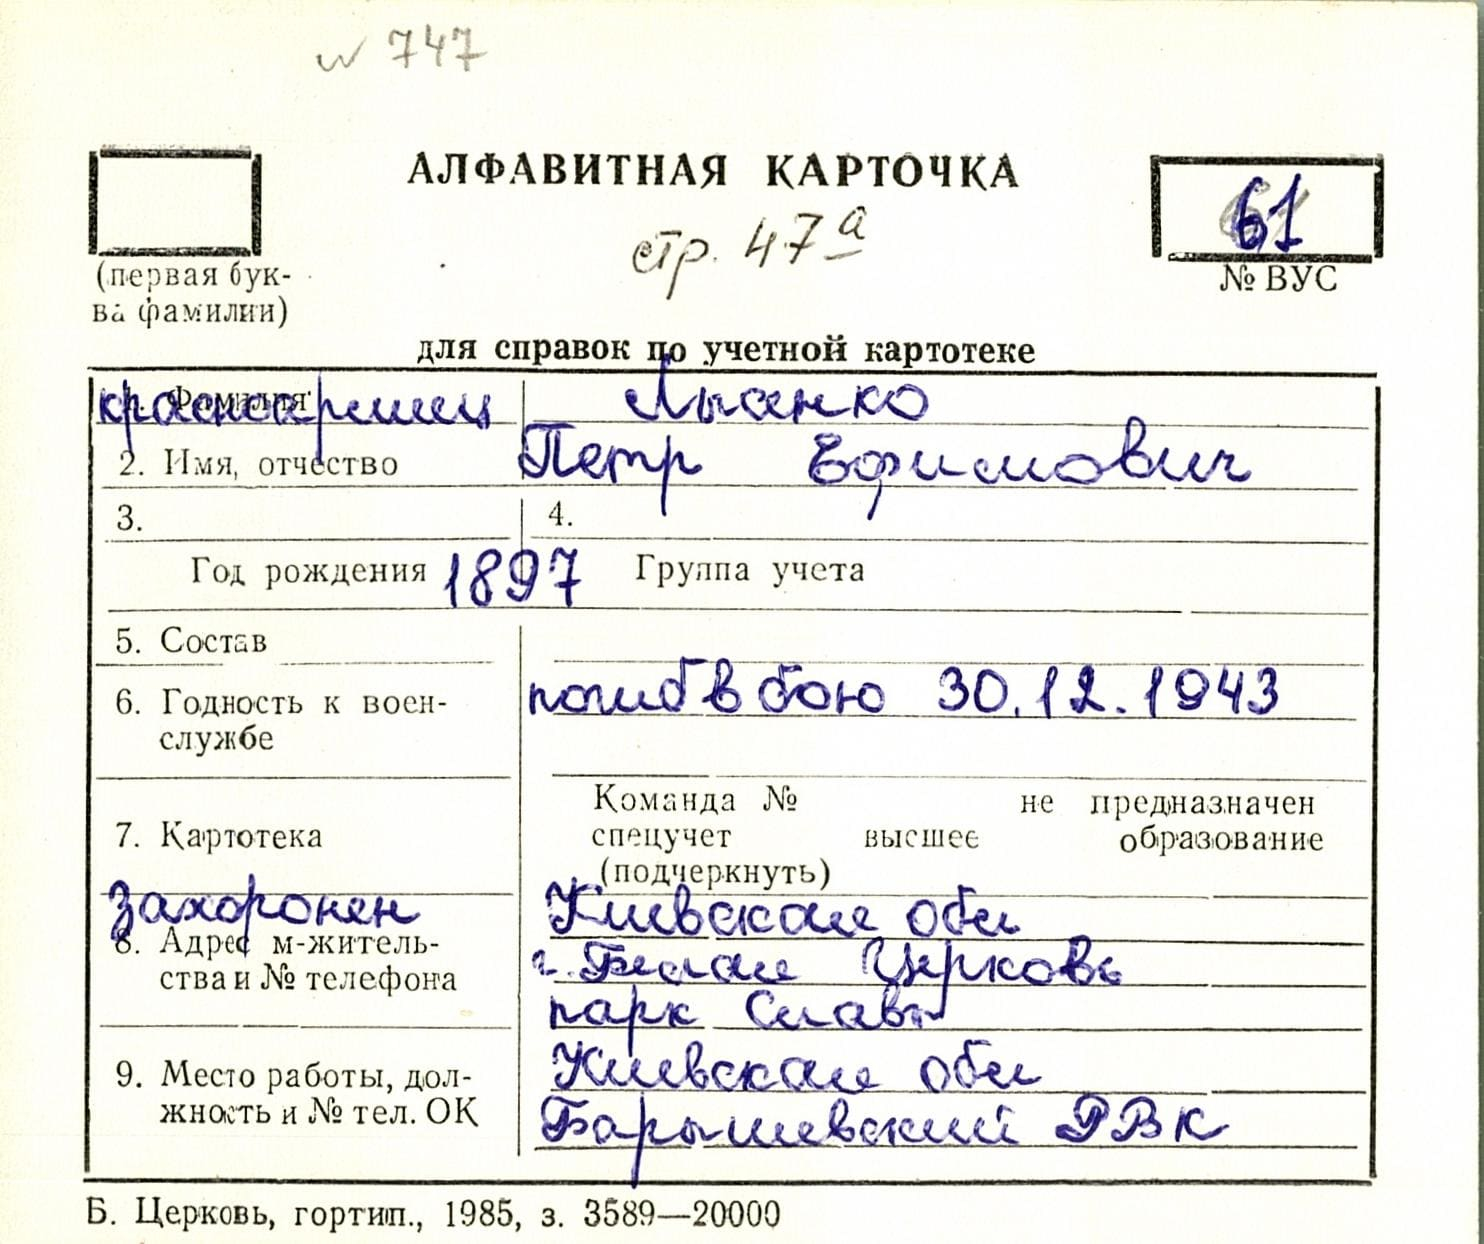 № 747
АЛФАВИТНАЯ КАРТОЧКА
61
стр. 47а
(первая бук-
ва фамилии)
№ ВУС
для справок по учетной картотеке
1. Фамилия
красноармеец Лысанко
2. Имя, отчество Петр Ефимович
3. 4.
Год рождения 1897 Группа учета
5. Состав
6. Годность к воен-
службе
погиб в бою 30.12.1943
Команда № не предназначен
7. Картотека спецучет высшее образование
(подчеркнуть)
Захоронен Киевская обл
8. Адрес м-житель-
ства и № телефона
г. Белая Церковь
парк Славы
9. Место работы, дол-
жность и № тел. ОК
Киевская обл
Барышевский РВК
Б. Церковь, гортип., 1985, з. 3589—20000